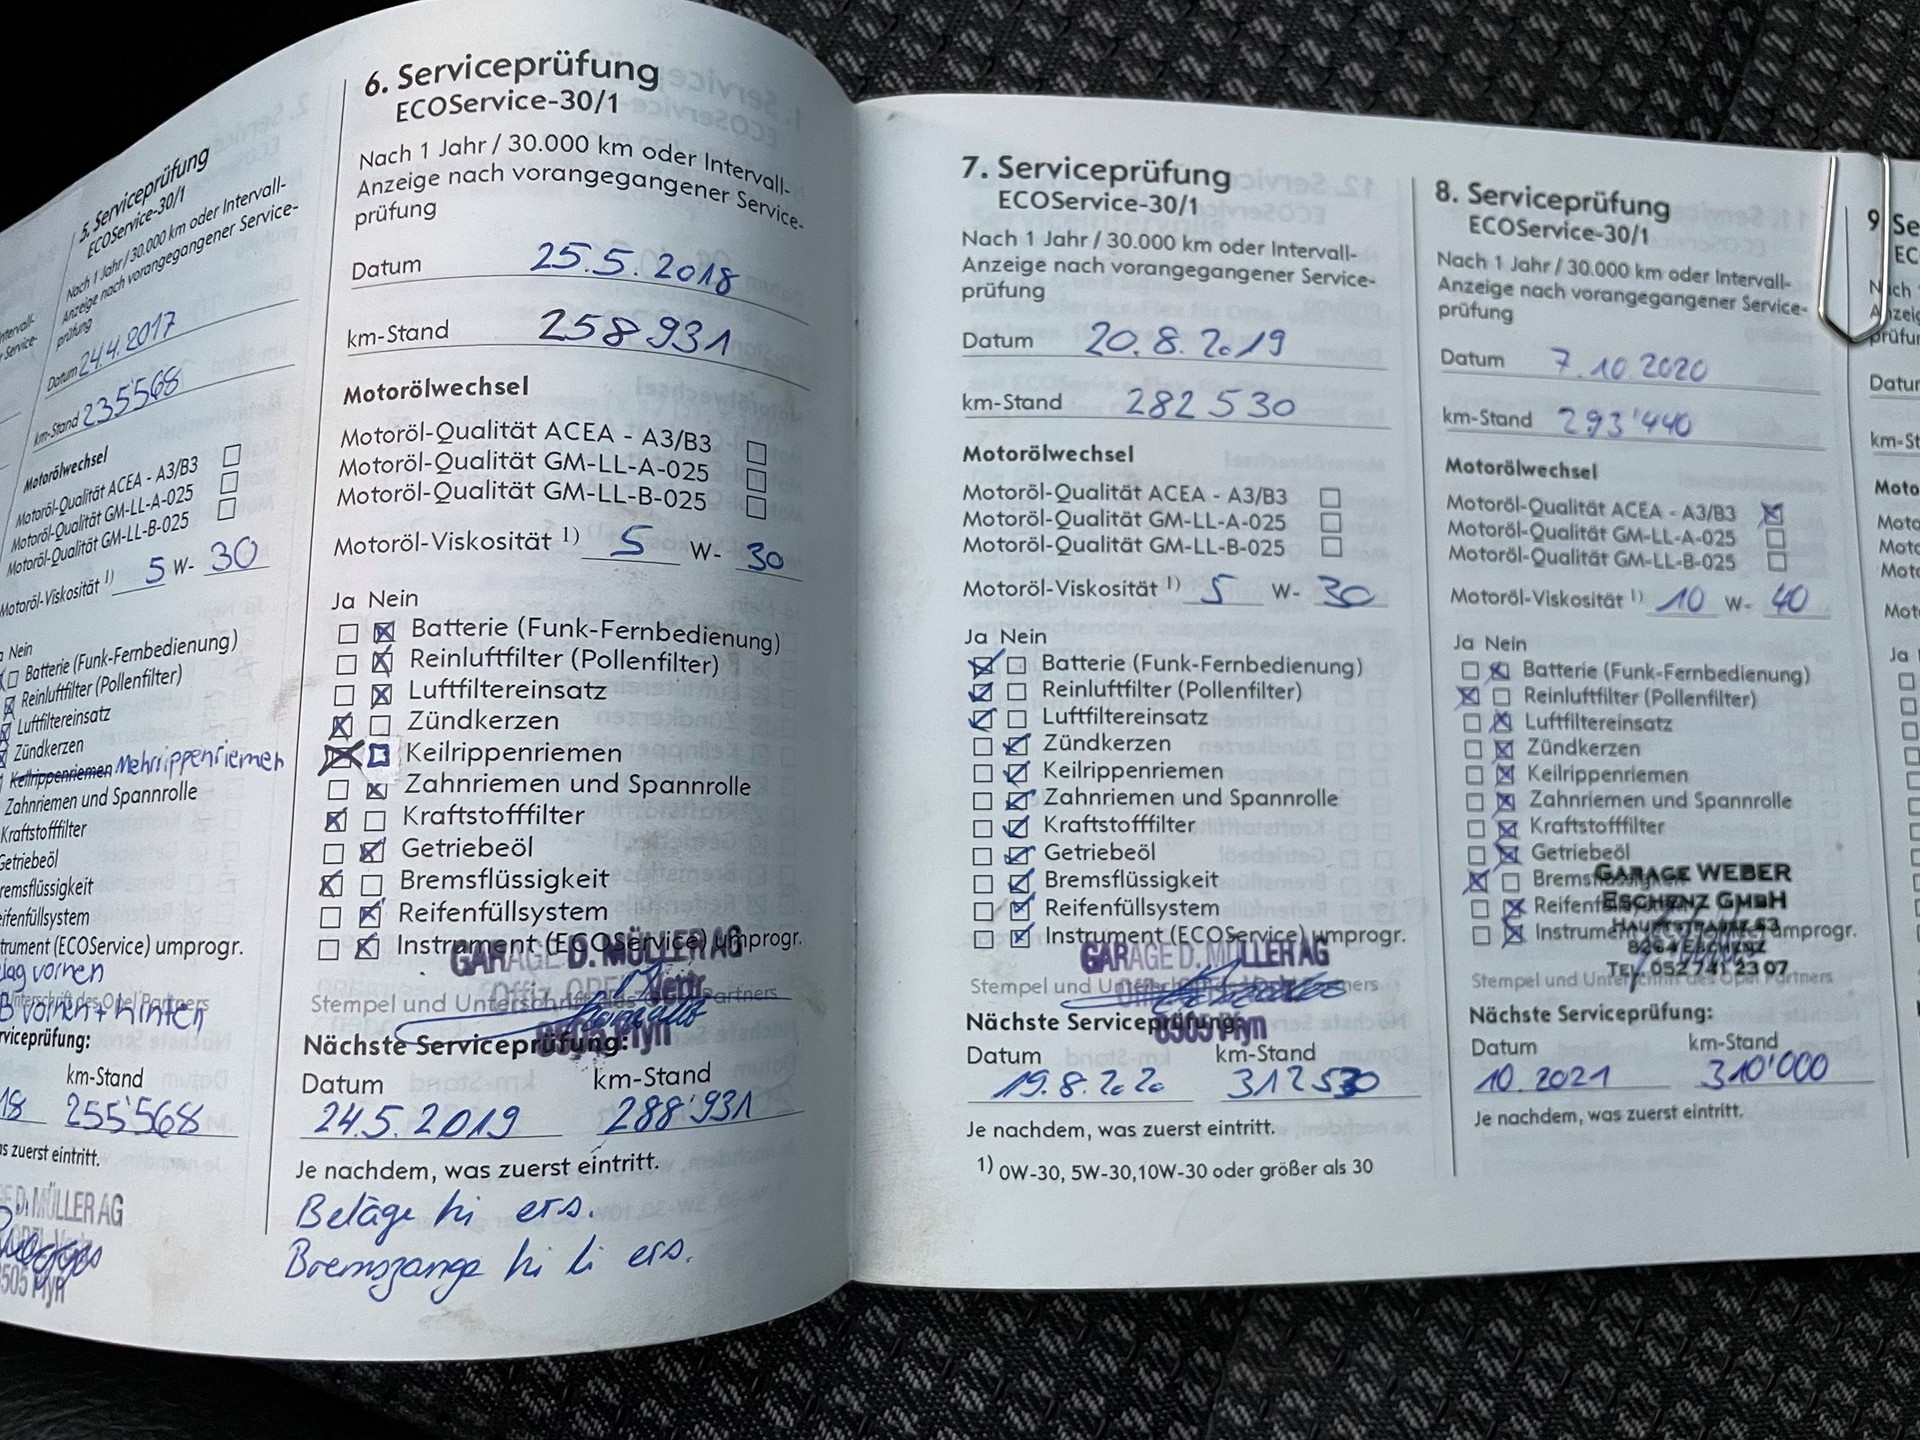 5. Serviceprüfung
ECOService-30/1
Nach 1 Jahr / 30.000 km oder Intervall-
Anzeige nach vorangegangener Service-
prüfung
Datum 24.4.2017
km-Stand 235'568
Motorölwechsel
Motoröl-Qualität ACEA - A3/B3
Motoröl-Qualität GM-LL-A-025
Motoröl-Qualität GM-LL-B-025
Motoröl-Viskosität 1) 5 W- 30
Nein
Batterie (Funk-Fernbedienung)
Reinluftfilter (Pollenfilter)
Luftfiltereinsatz
Zündkerzen
Keilrippenriemen Mehrrippenriemen
Zahnriemen und Spannrolle
Kraftstofffilter
Getriebeöl
Bremsflüssigkeit
Reifenfüllsystem
Instrument (ECOService) umprogr.
vornen
Unterschrift des Opel Partners
vornen + hinten
km-Stand
255'568
zuerst eintritt.
D. MÜLLER AG
8505 Pfyn
6. Serviceprüfung
ECOService-30/1
Nach 1 Jahr / 30.000 km oder Intervall-
Anzeige nach vorangegangener Service-
prüfung
Datum 25.5.2018
km-Stand 258 931
Motorölwechsel
Motoröl-Qualität ACEA - A3/B3
Motoröl-Qualität GM-LL-A-025
Motoröl-Qualität GM-LL-B-025
Motoröl-Viskosität 1) 5 W- 30
Ja Nein
Batterie (Funk-Fernbedienung)
Reinluftfilter (Pollenfilter)
Luftfiltereinsatz
Zündkerzen
Keilrippenriemen
Zahnriemen und Spannrolle
Kraftstofffilter
Getriebeöl
Bremsflüssigkeit
Reifenfüllsystem
Instrument (ECOService) umprogr.
GARAGE D. MÜLLER AG
Offiz. OPEL-Vertr.
Stempel und Unterschrift des Opel Partners
8505 Pfyn
Nächste Serviceprüfung:
Datum km-Stand
24.5.2019 288'931
Je nachdem, was zuerst eintritt.
Beläge hi ers.
Bremszange hi li ers.
7. Serviceprüfung
ECOService-30/1
Nach 1 Jahr / 30.000 km oder Intervall-
Anzeige nach vorangegangener Service-
prüfung
Datum 20.8.2019
km-Stand 282 530
Motorölwechsel
Motoröl-Qualität ACEA - A3/B3
Motoröl-Qualität GM-LL-A-025
Motoröl-Qualität GM-LL-B-025
Motoröl-Viskosität 1) 5 W- 30
Ja Nein
Batterie (Funk-Fernbedienung)
Reinluftfilter (Pollenfilter)
Luftfiltereinsatz
Zündkerzen
Keilrippenriemen
Zahnriemen und Spannrolle
Kraftstofffilter
Getriebeöl
Bremsflüssigkeit
Reifenfüllsystem
Instrument (ECOService) umprogr.
GARAGE D. MÜLLER AG
Stempel und
8505 Pfyn
Nächste Serviceprüfung:
Datum km-Stand
19.8.2020 312 530
Je nachdem, was zuerst eintritt.
1) 0W-30, 5W-30,10W-30 oder größer als 30
8. Serviceprüfung
ECOService-30/1
Nach 1 Jahr / 30.000 km oder Intervall-
Anzeige nach vorangegangener Service-
prüfung
Datum 7.10.2020
km-Stand 293'440
Motorölwechsel
Motoröl-Qualität ACEA - A3/B3
Motoröl-Qualität GM-LL-A-025
Motoröl-Qualität GM-LL-B-025
Motoröl-Viskosität 1) 10 W- 40
Ja Nein
Batterie (Funk-Fernbedienung)
Reinluftfilter (Pollenfilter)
Luftfiltereinsatz
Zündkerzen
Keilrippenriemen
Zahnriemen und Spannrolle
Kraftstofffilter
Getriebeöl
Bremsflüssigkeit
Reifenfüllsystem
Instrument umprogr.
GARAGE WEBER
ESCHENZ GMBH
HAUPTSTRASSE 53
8264 ESCHENZ
TEL. 052 741 23 07
Stempel und Unterschrift des Opel Partners
Nächste Serviceprüfung:
Datum km-Stand
10.2021 310'000
Je nachdem, was zuerst eintritt.
9